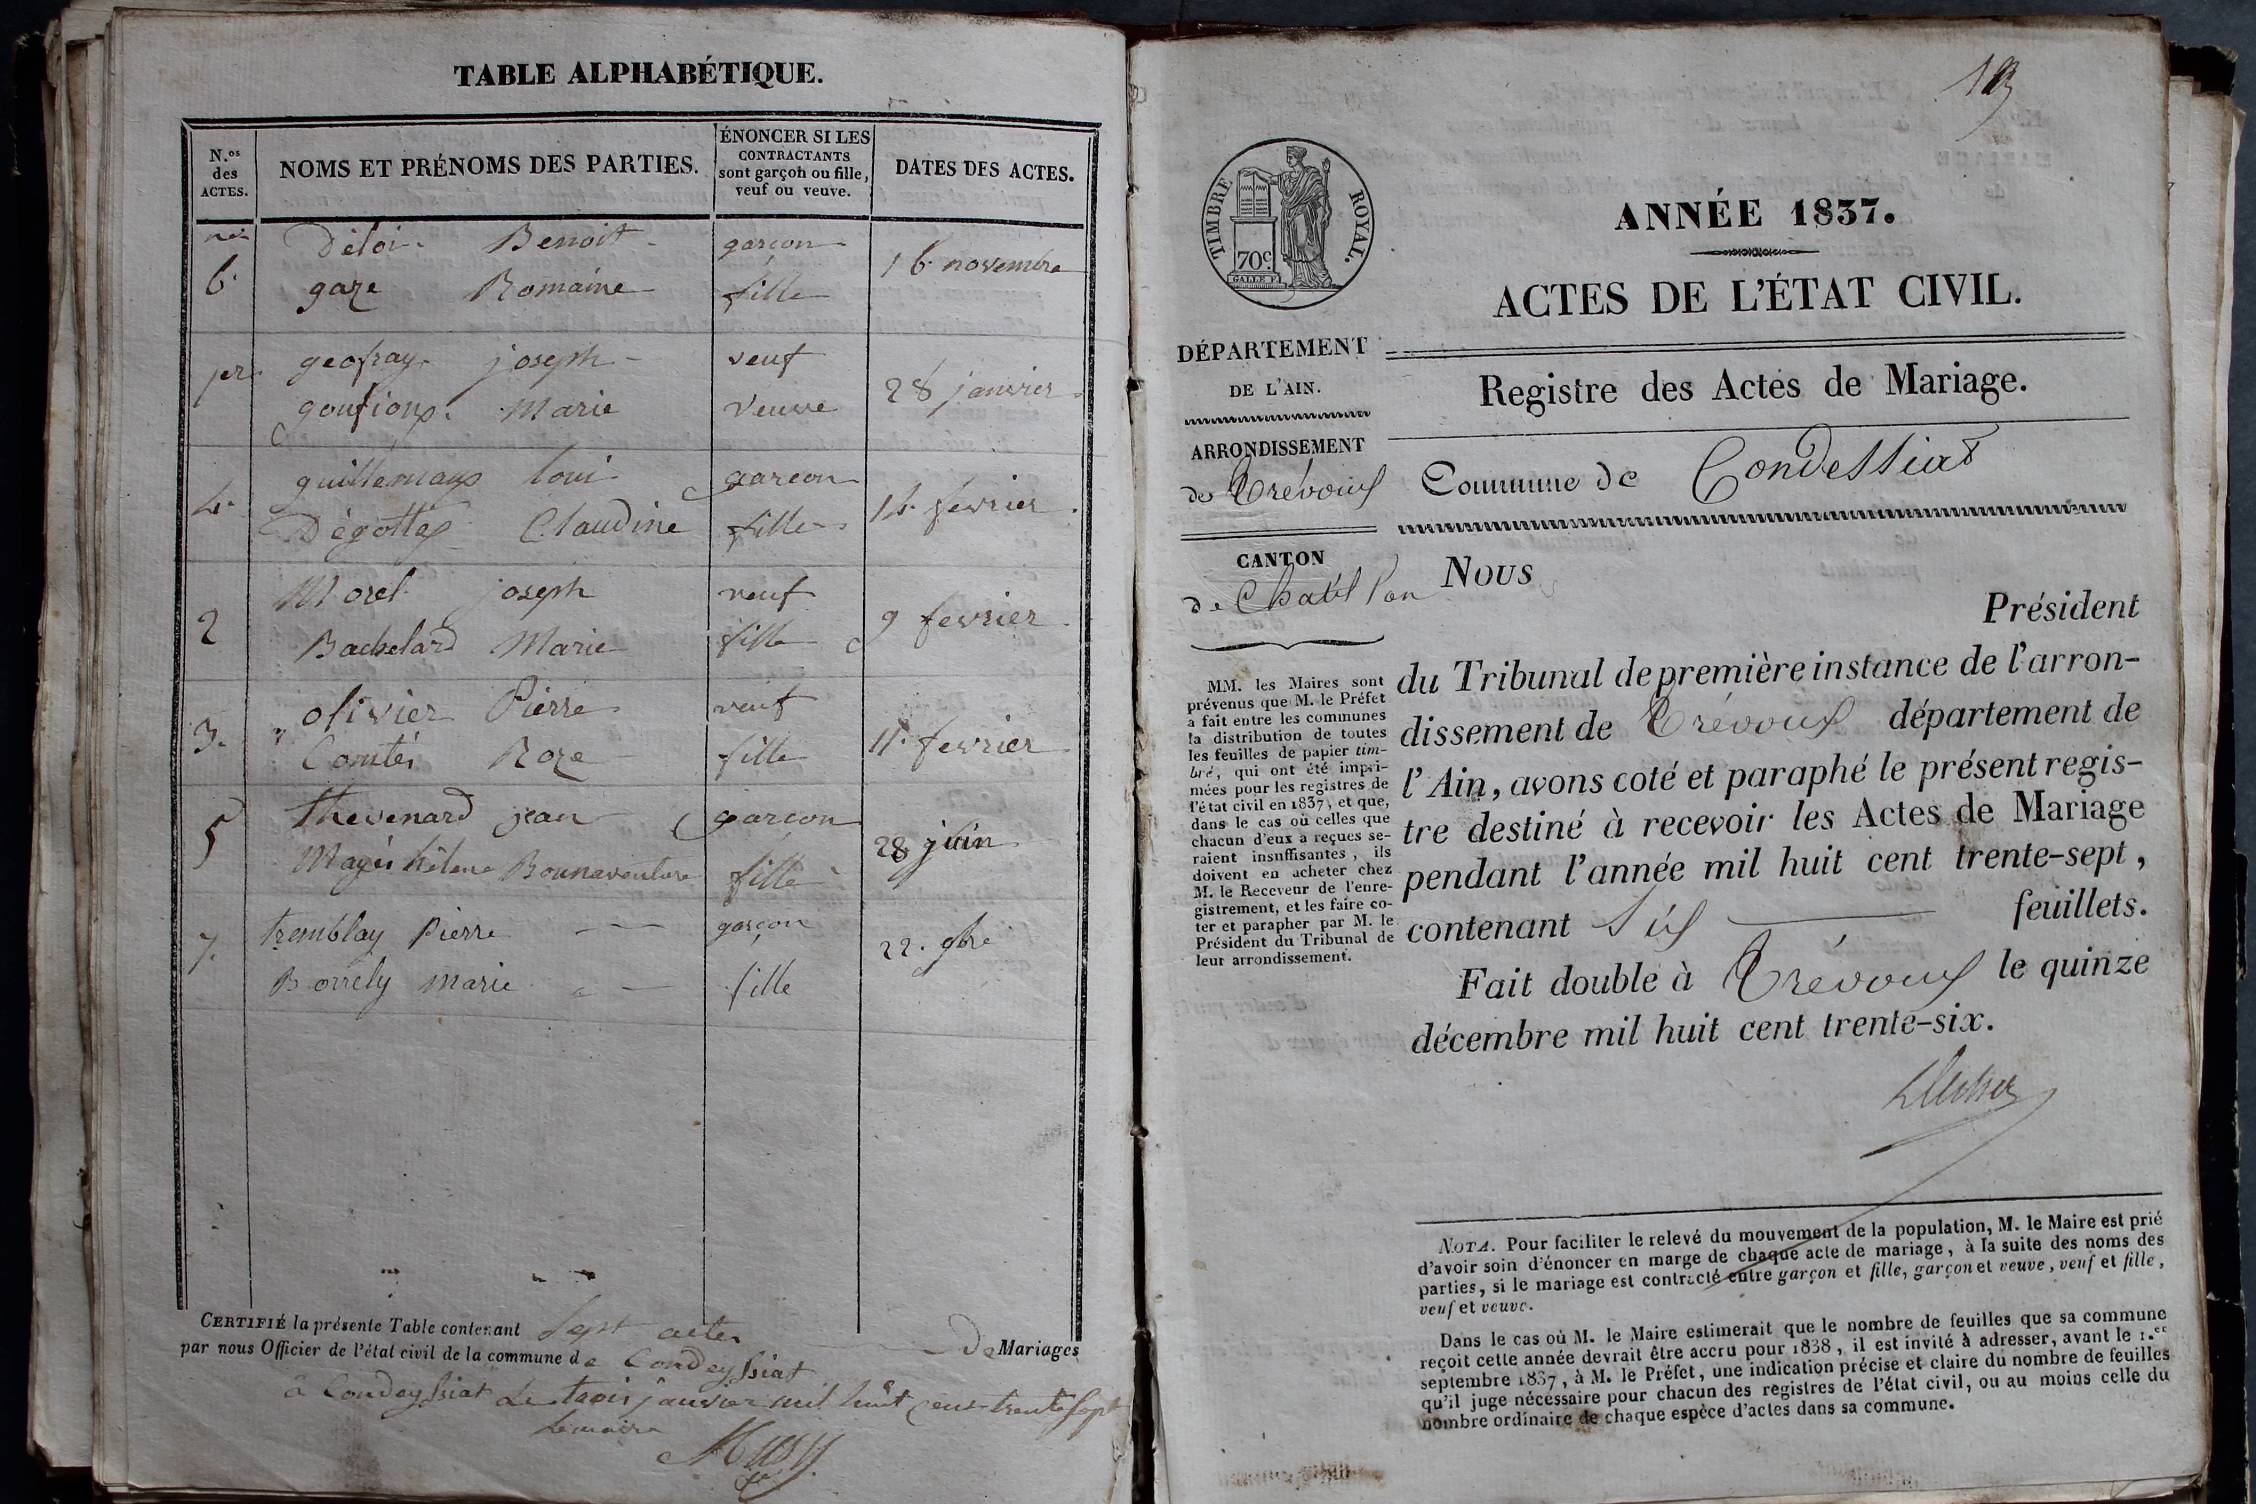 TABLE ALPHABÉTIQUE.
N.os des ACTES.
NOMS ET PRÉNOMS DES PARTIES.
ÉNONCER SI LES CONTRACTANTS sont garçon ou fille, veuf ou veuve.
DATES DES ACTES.
Déloi Benoit garçon
6. 16 novembre
gaze Romaine fille
geofray joseph veuf
pr. 28 janvier
Marie veuve
loui garcon
4. 14 fevrier
Claudine fille
Morel joseph veuf
2 9 fevrier
Bachelard Marie fille
olivier Pierre veuf
3. 11 fevrier
Comtés Roze fille
thevenard jean garcon
5 28 juin
Bonnaventure fille
tremblay Pierre garçon
7. 22. 9bre
Borrely marie fille
CERTIFIÉ la présente Table contenant Sept actes De Mariages
par nous Officier de l'état civil de la commune de Condeyssiat
à Condeyssiat Le trois janvier mil huit cent trente sept
Le maire
TIMBRE ROYAL.
70c.
GALLE F.
ANNÉE 1837.
ACTES DE L'ÉTAT CIVIL.
Registre des Actes de Mariage.
DÉPARTEMENT
DE L'AIN.
ARRONDISSEMENT
de Trévoux
Commune de Condessiat
CANTON
de Chatillon
MM. les Maires sont
prévenus que M. le Préfet
a fait entre les communes
la distribution de toutes
les feuilles de papier tim-
bré, qui ont été impri-
mées pour les registres de
l'état civil en 1837, et que,
dans le cas où celles que
chacun d'eux a reçues se-
raient insuffisantes, ils
doivent en acheter chez
M. le Receveur de l'enre-
gistrement, et les faire co-
ter et parapher par M. le
Président du Tribunal de
leur arrondissement.
Nous
Président
du Tribunal de première instance de l'arron-
dissement de Trévoux département de
l'Ain, avons coté et paraphé le présent regis-
tre destiné à recevoir les Actes de Mariage
pendant l'année mil huit cent trente-sept,
contenant six feuillets.
Fait double à Trévoux le quinze
décembre mil huit cent trente-six.
NOTA. Pour faciliter le relevé du mouvement de la population, M. le Maire est prié
d'avoir soin d'énoncer en marge de chaque acte de mariage, à la suite des noms des
parties, si le mariage est contracté entre garçon et fille, garçon et veuve, veuf et fille,
veuf et veuve.
Dans le cas où M. le Maire estimerait que le nombre de feuilles que sa commune
reçoit cette année devrait être accru pour 1838, il est invité à adresser, avant le 1.er
septembre 1837, à M. le Préfet, une indication précise et claire du nombre de feuilles
qu'il juge nécessaire pour chacun des registres de l'état civil, ou au moins celle du
nombre ordinaire de chaque espèce d'actes dans sa commune.